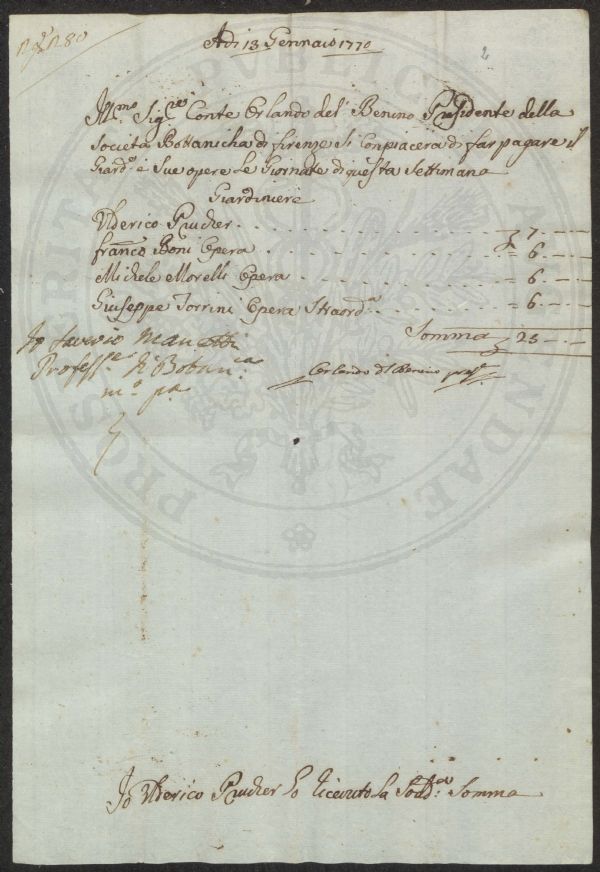 Adi 13 Gennaio 1770
2
Ill.mo Sig.re Conte Orlando del Benino Presidente della
Società Bottanicha di firenze Si Conpiacera di far pagare il
Giard.o e Sue opere le Giornate di questa Settimana
Giardiniere
Ulderico Prucher 7
franc.o Boni Opera 6
Michele Morelli Opera 6
Giuseppe Torrini Opera Straord.a 6
Somma 25
Io Saverio Manetti
Profess.e di Botan.ca
m.o p.a
Orlando del Benino
Io Ulderico Prucher ho ricevuto la Sod.a Somma
PROSPERITATI PVBLICAE AVGENDAE